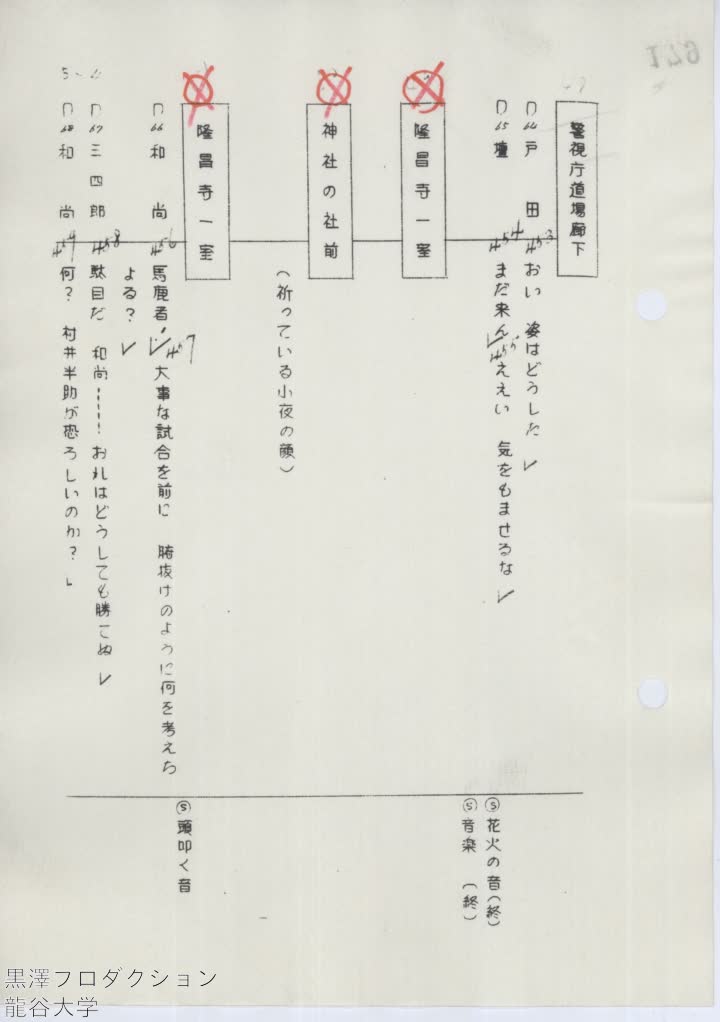 警視庁道場廊下
D64 戸田 453 おい 姿はどうした
D65 壇 454 まだ来ん 455 ええい 気をもませるな
Ⓢ 花火の音(終)
Ⓢ 音楽 (終)
隆昌寺一室
神社の社前
(祈っている小夜の顔)
隆昌寺一室
D66 和尚 456 馬鹿者! 457 大事な試合を前に 腑抜けのように何を考えち
よる?
Ⓢ 頭叩く音
D67 三四郎 458 駄目だ 和尚……! おれはどうしても勝てぬ
D68 和尚 459 何? 村井半助が恐ろしいのか?
黒澤プロダクション
龍谷大学